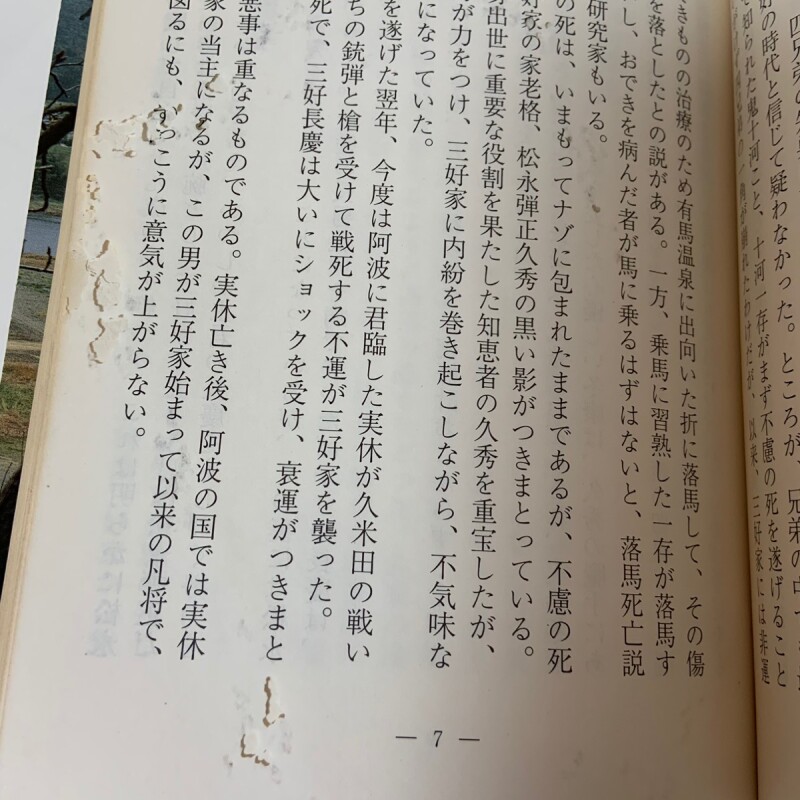 四兄弟の
好の時代と信じて疑わなかった。ところが、兄弟の中で
で知られた鬼十河こと、十河一存がまず不慮の死を遂げること
が崩れたわけだが、以来、三好家には非運
きものの治療のため有馬温泉に出向いた折に落馬して、その傷
を落としたとの説がある。一方、乗馬に習熟した一存が落馬す
し、おできを病んだ者が馬に乗るはずはないと、落馬死亡説
研究家もいる。
の死は、いまもってナゾに包まれたままであるが、不慮の死
好家の家老格、松永弾正久秀の黒い影がつきまとっている。
身出世に重要な役割を果たした知恵者の久秀を重宝したが、
が力をつけ、三好家に内紛を巻き起こしながら、不気味な
になっていた。
を遂げた翌年、今度は阿波に君臨した実休が久米田の戦い
ちの銃弾と槍を受けて戦死する不運が三好家を襲った。
死で、三好長慶は大いにショックを受け、衰運がつきまと
悪事は重なるものである。実休亡き後、阿波の国では実休
家の当主になるが、この男が三好家始まって以来の凡将で、
図るにも、すっこうに意気が上がらない。
— 7 —